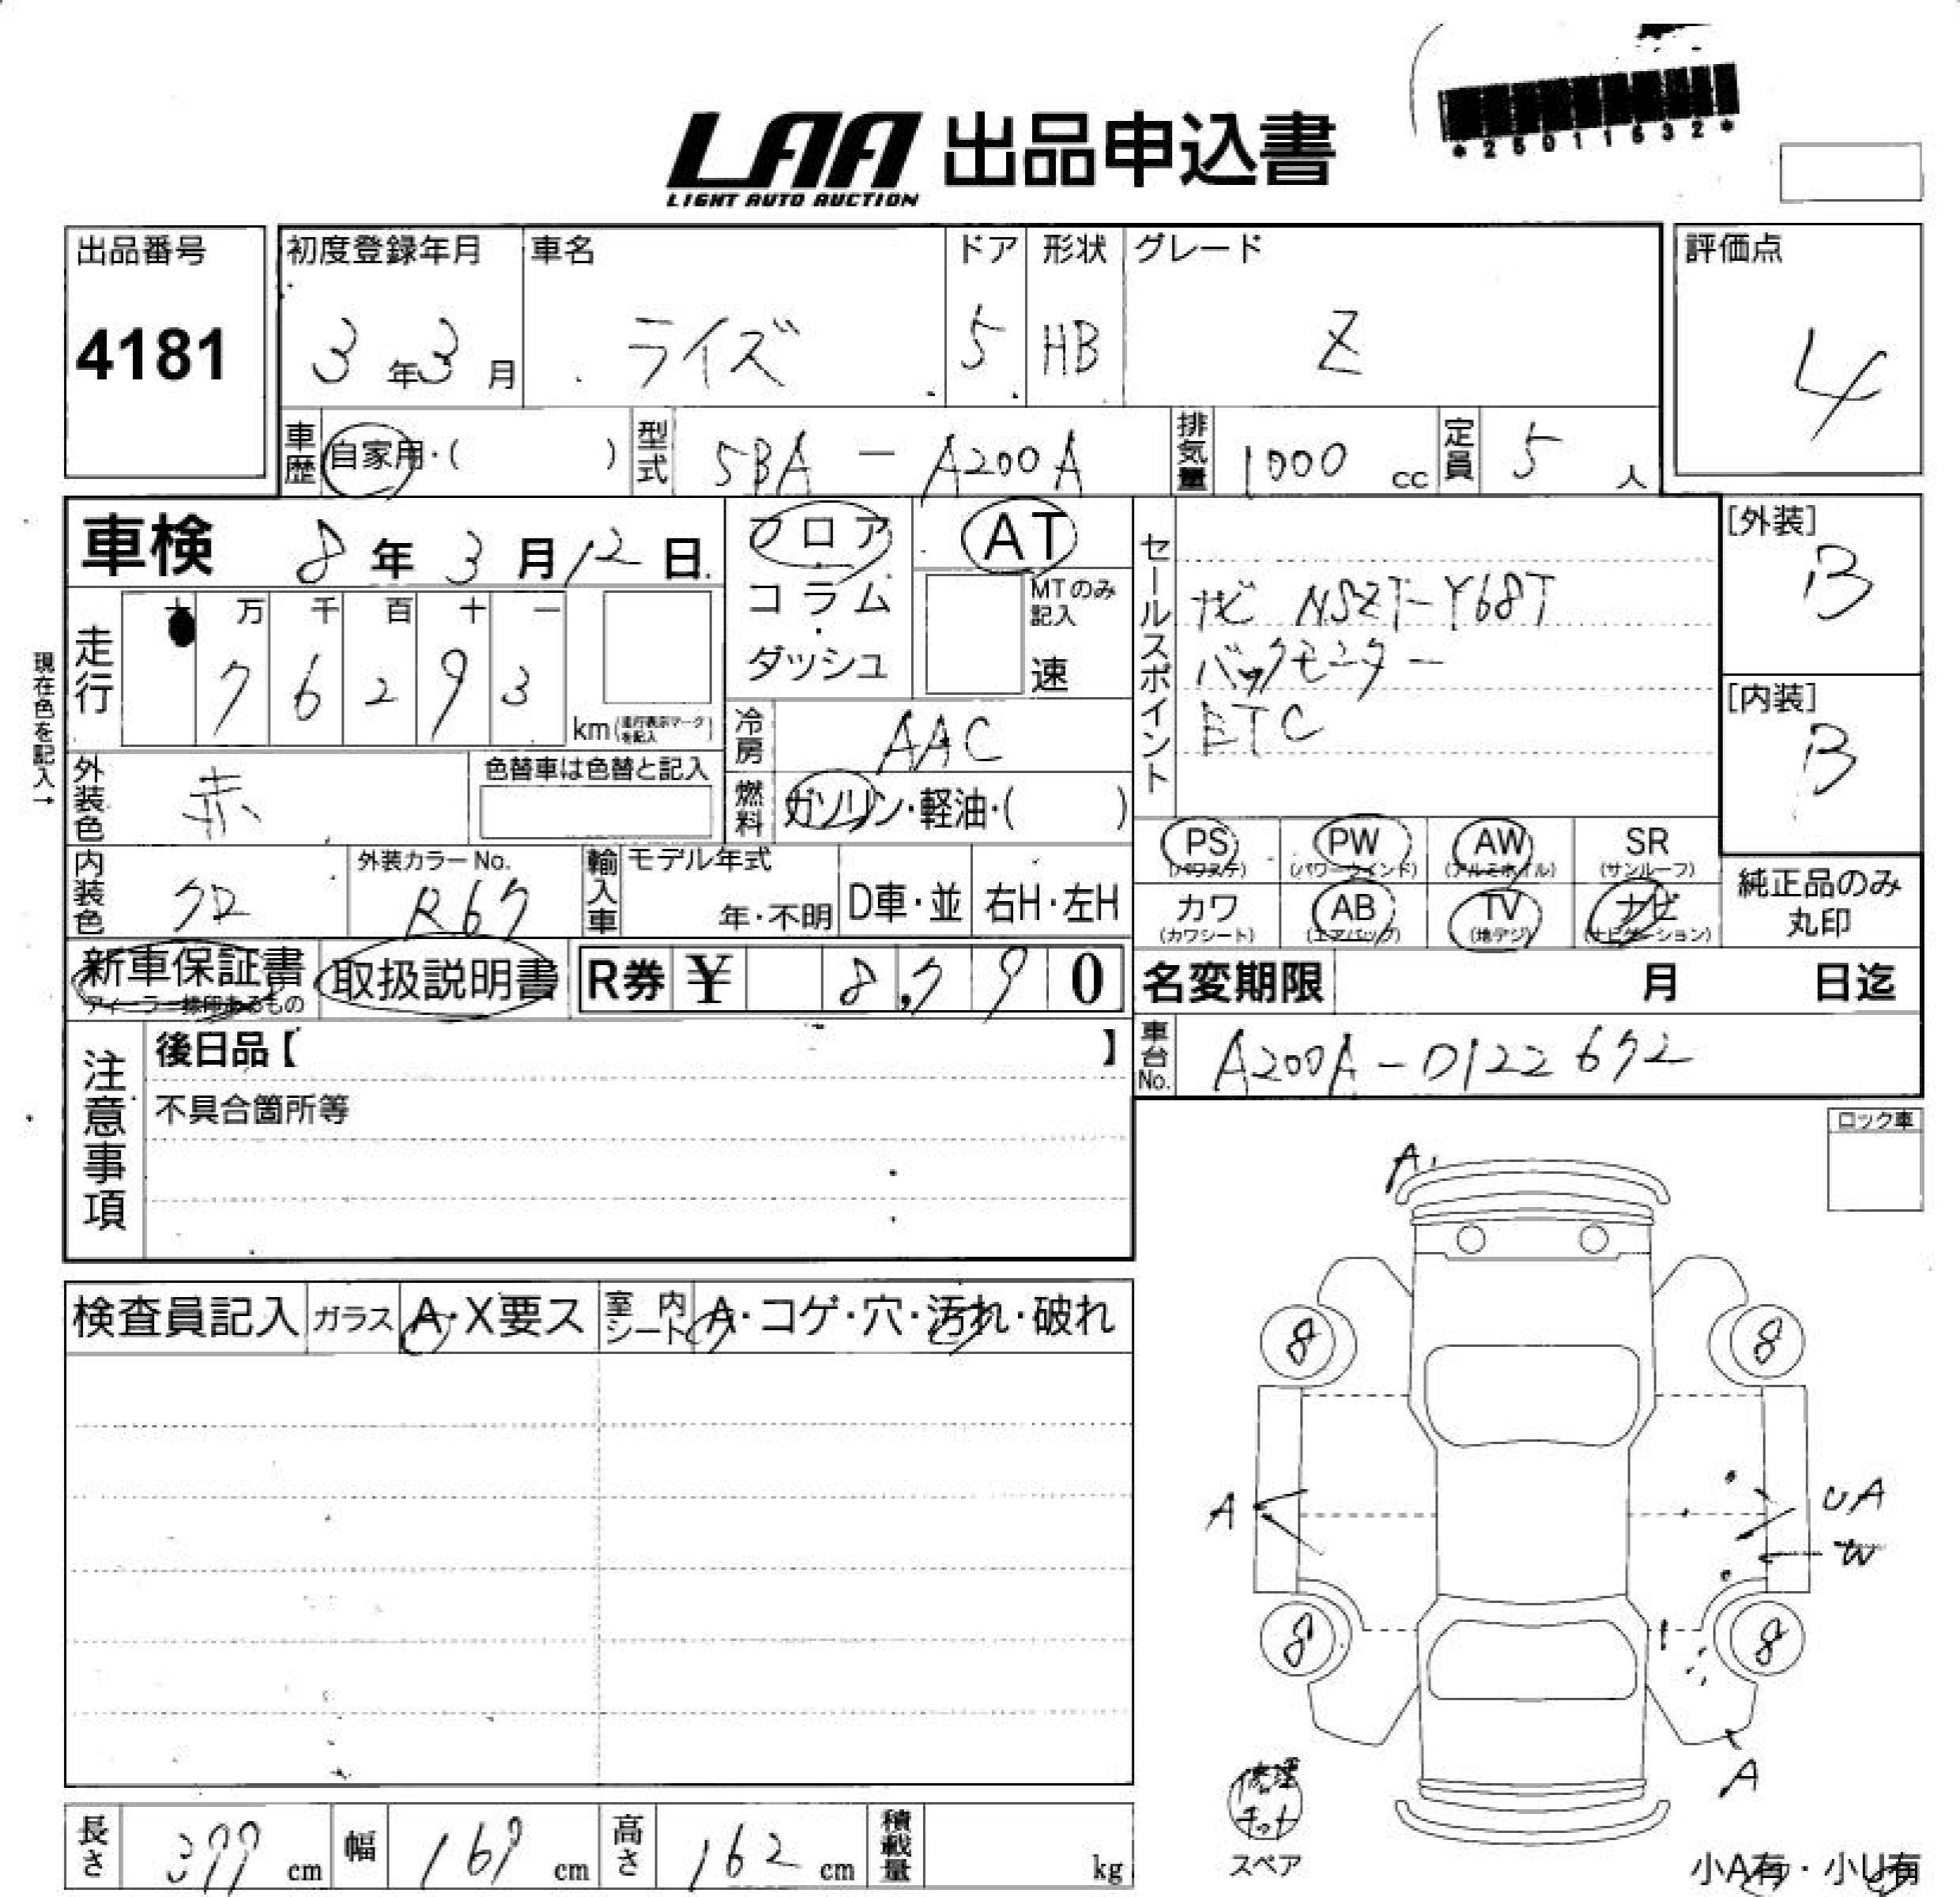 LAA 出品申込書
LIGHT AUTO AUCTION
*25011632*
出品番号
4181
初度登録年月
3年3月
車名
ライズ
ドア
5
形状
HB
グレード
Z
評価点
4
車歴 自家用・( )
型式 5BA - A200A
排気量 1000 cc
定員 5 人
車検 8年3月12日
フロア
コラム
・
ダッシュ
AT
MTのみ記入
速
セールスポイント
ナビ NSZT-Y68T
バックモニター
ETC
[外装]
B
[内装]
B
現在色を記入→
走行
十 万 千 百 十 一
7 6 2 9 3
km (走行表示マークを記入)
冷房 AAC
外装色 赤
色替車は色替と記入
燃料 ガソリン・軽油・( )
内装色 クロ
外装カラーNo.
R67
輸入車
モデル年式
年・不明
D車・並
右H・左H
PS (パワステ)
PW (パワーウインド)
AW (アルミホイル)
SR (サンルーフ)
カワ (カワシート)
AB (エアバッグ)
TV (地デジ)
ナビ (ナビゲーション)
純正品のみ
丸印
新車保証書
ディーラー捺印あるもの
取扱説明書
R券 ¥ 8,790
名変期限 月 日迄
車台No. A200A-0122672
注意事項
後日品【 】
不具合箇所等
ロック車
検査員記入
ガラス A・X要ス
室内シート A・コゲ・穴・汚れ・破れ
A
8
8
A
UA
W
8
8
A
修理
キット
スペア
小A有・小U有
長さ 399 cm
幅 169 cm
高さ 162 cm
積載量 kg